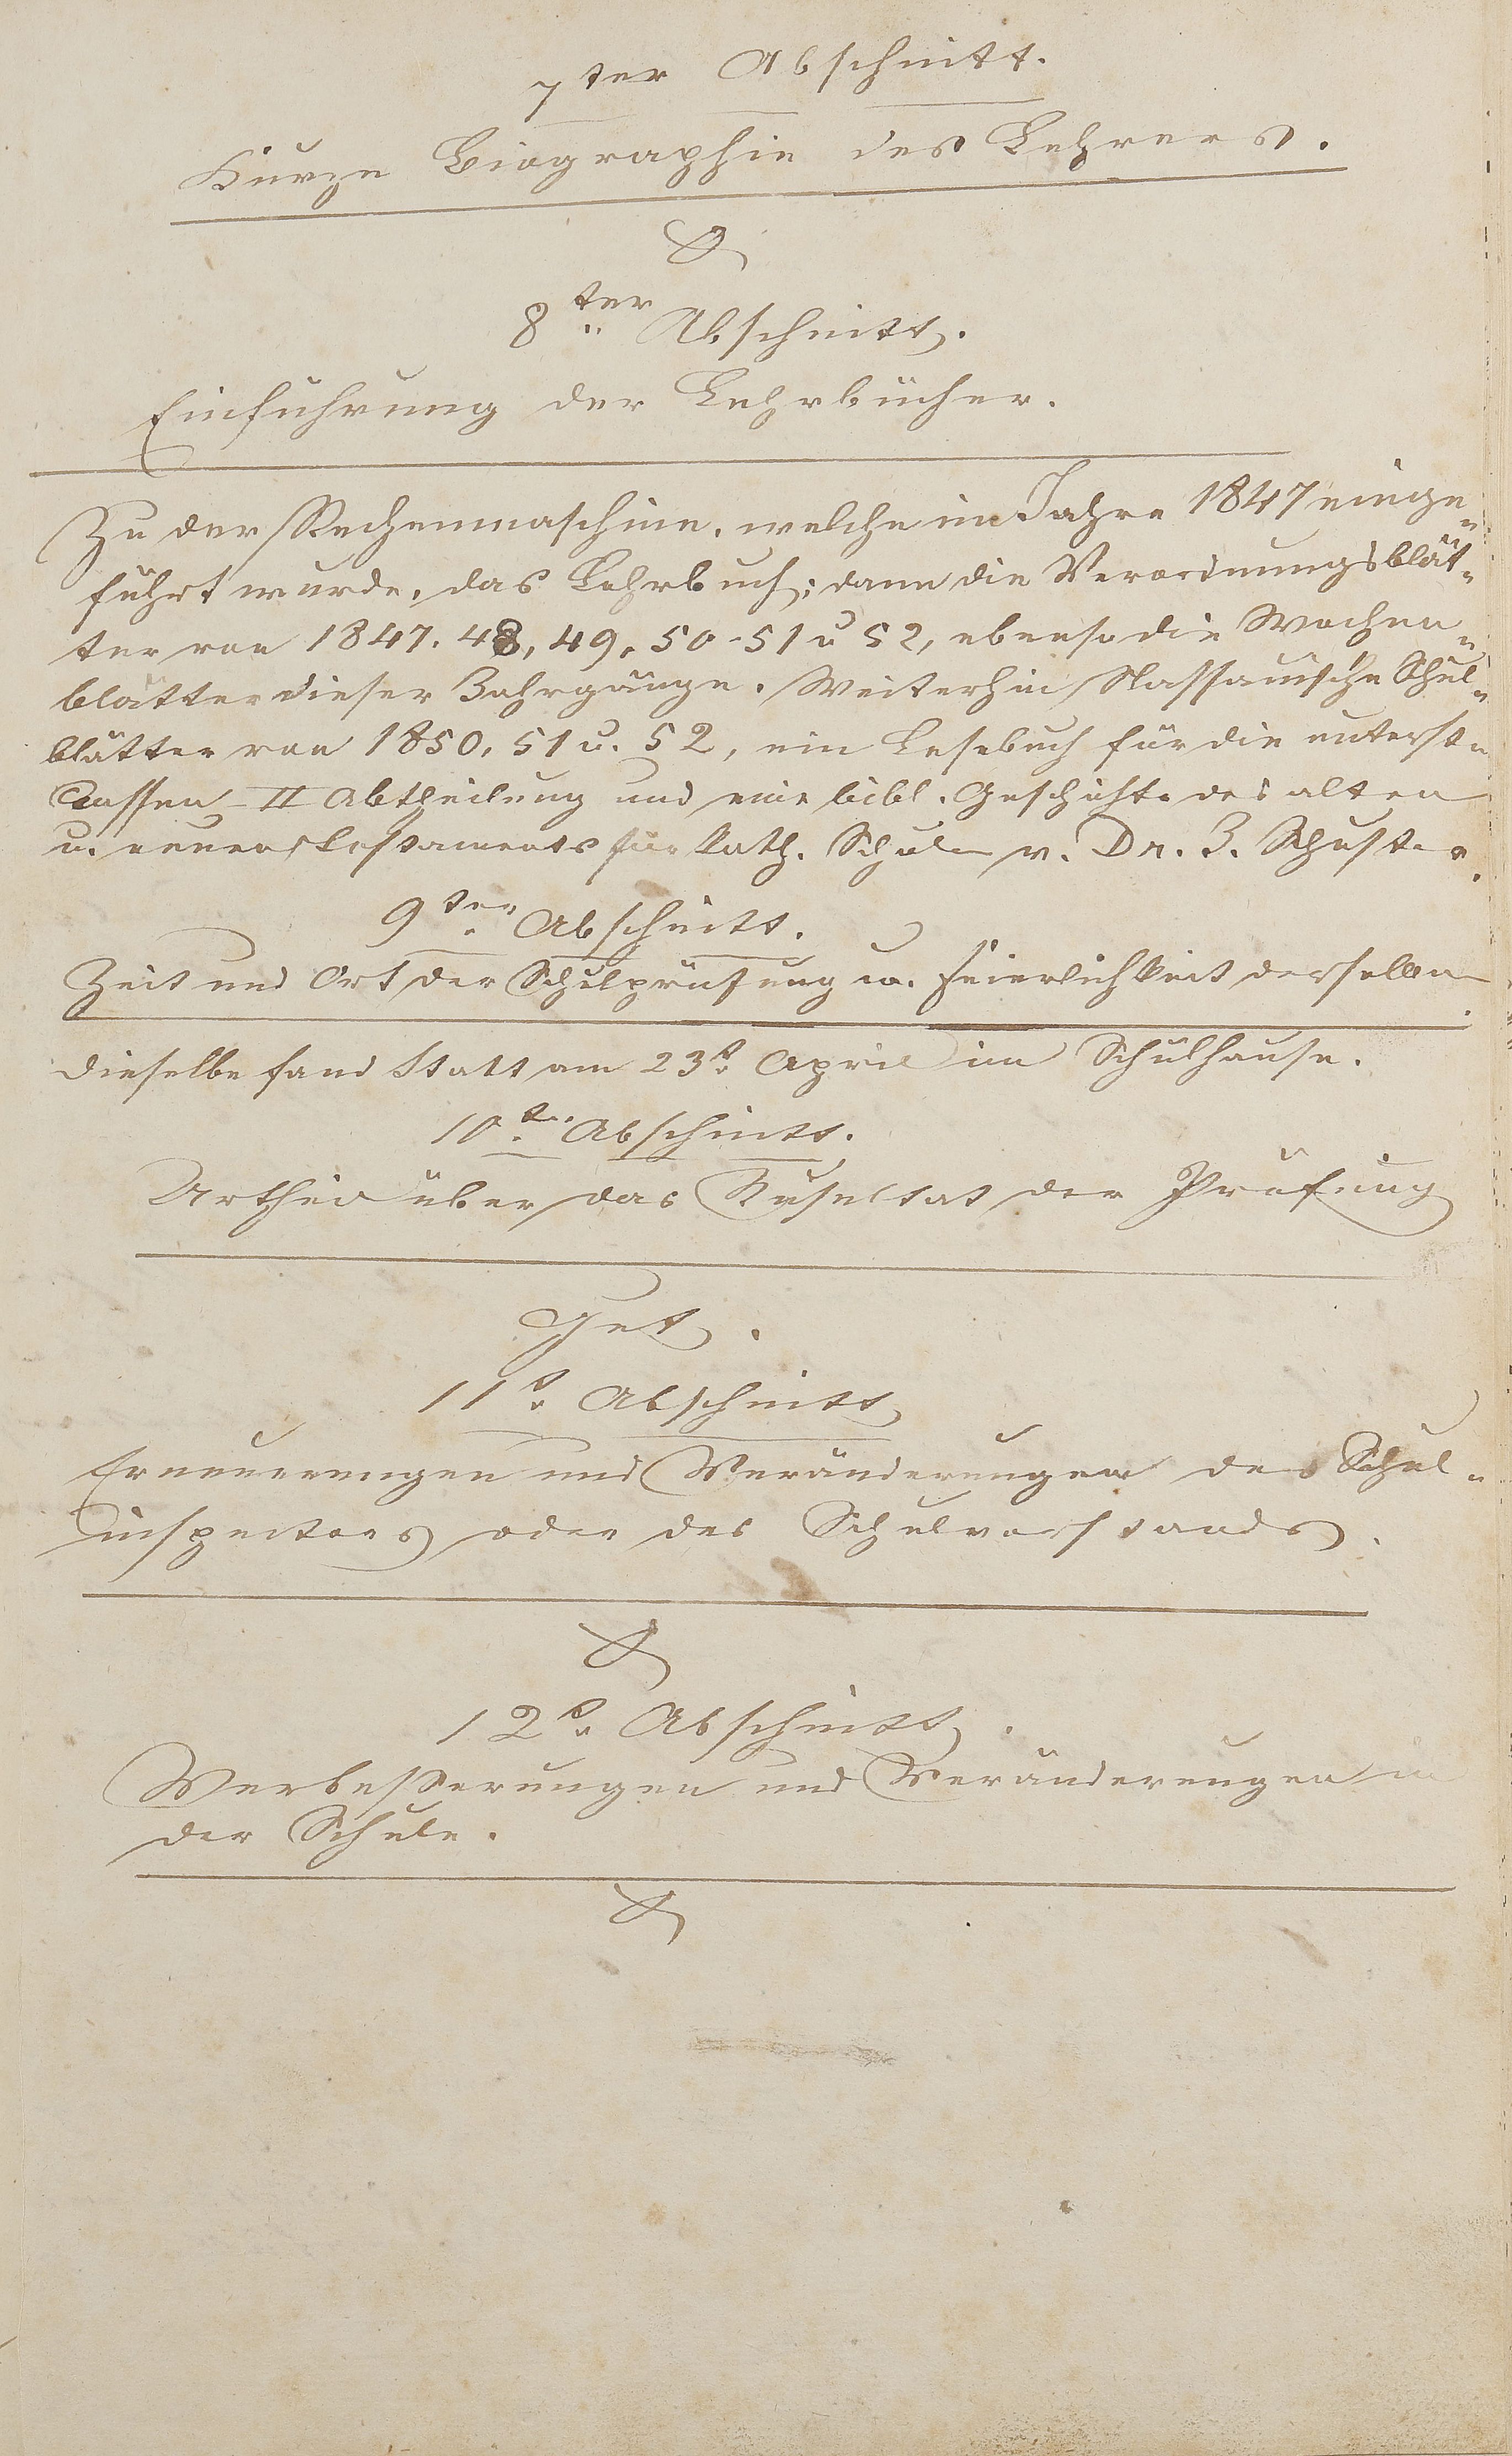 7ter Abschnitt.
Kurze Biographie des Lehrers.
8ter Abschnitt.
Einführung der Lehrbücher.
Zu der Rechenmaschine, welche im Jahre 1847 einge-
führt wurde, das Lehrbuch; dann die Verordnungsblät-
ter von 1847. 48, 49, 50 - 51 u 52, ebenso die Wochen-
blätter dieser Jahrgänge. Weiterhin Nassauische Schul-
blätter von 1850, 51 u. 52, ein Lesebuch für die unterste
Classen II Abtheilung und eine bibl. Geschichte des alten
u. neuen Testaments für kath. Schulen v. Dr. J. Schuster.
9ter Abschnitt.
Zeit und Ort der Schulprüfung u. Feierlichkeit derselben.
Dieselbe fand Statt am 23t. April im Schulhause.
10ter Abschnitt.
Urtheil über das Resultat der Prüfung
Gut.
11t. Abschnitt
Erneuerungen und Veränderungen des Schul-
inspectors oder des Schulvorstands.
12t. Abschnitt.
Verbesserungen und Veränderungen in
der Schule.